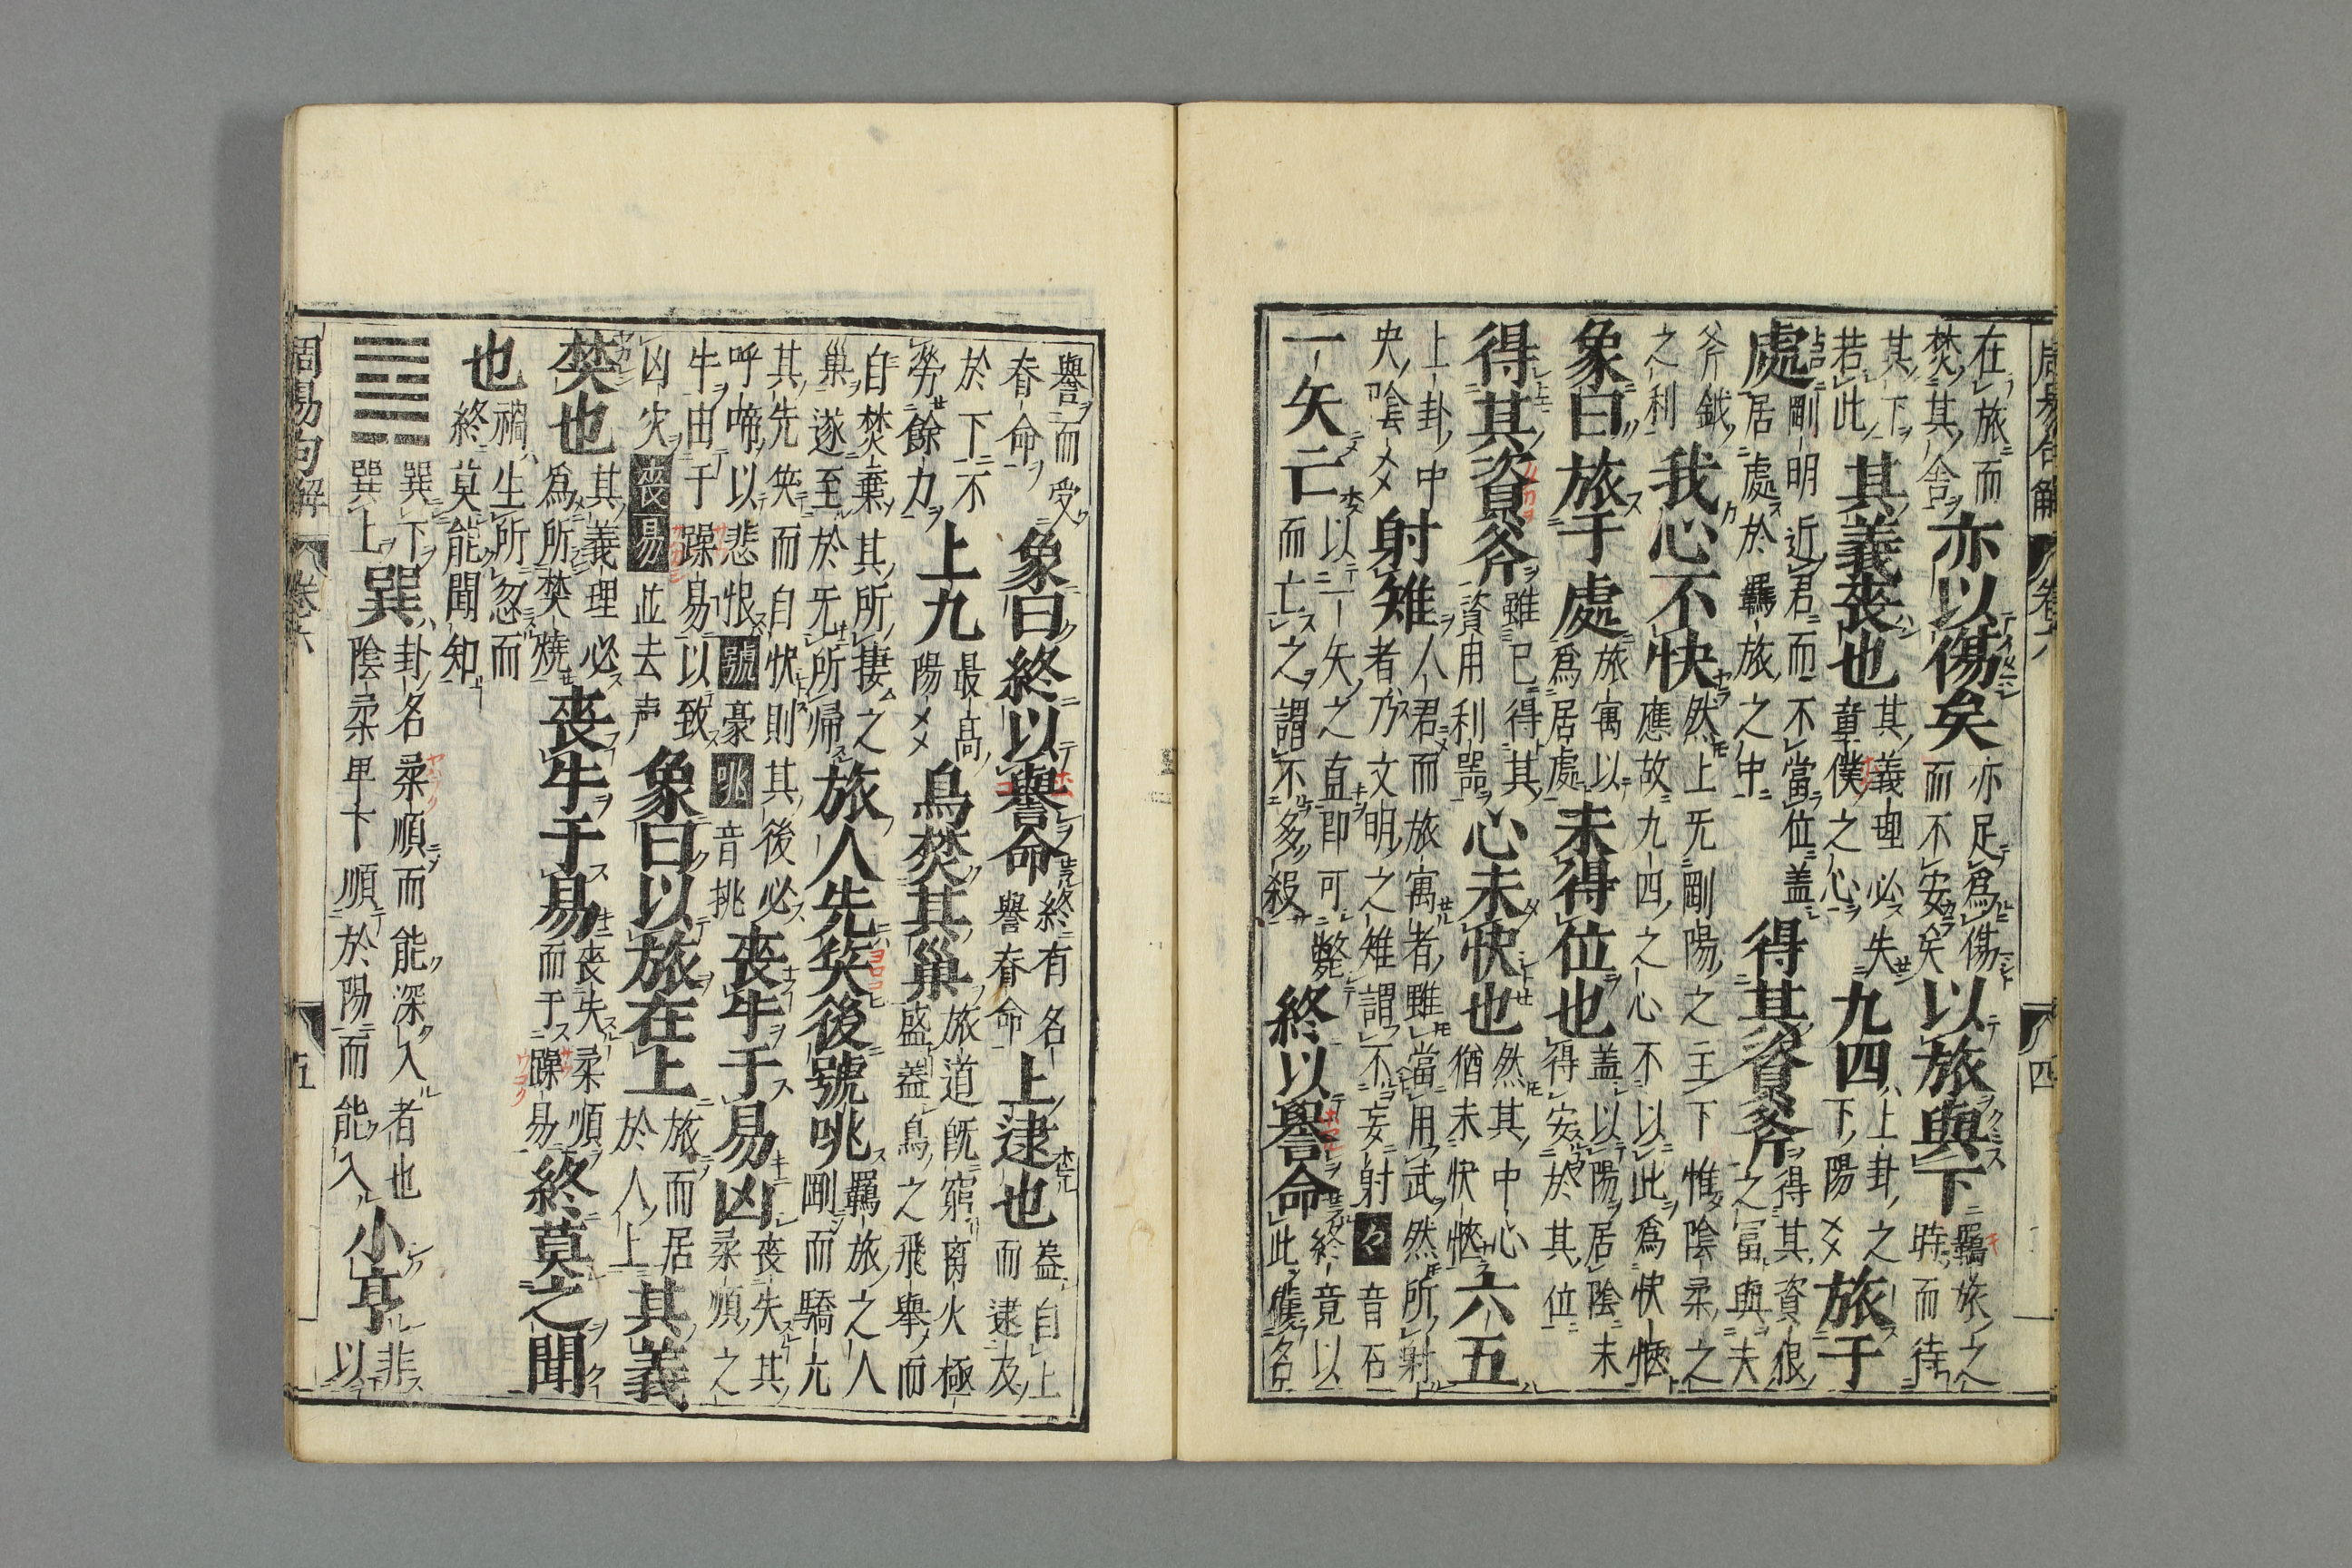 周易句解 卷六 四
在旅而焚其舍亦以傷矣亦足爲傷而不安矣以旅與下羈旅之時而待
其下若此其義喪也其義理必失童僕之心九四上卦之下陽爻旅于
處剛明近君而不當位盖居處於羈旅之中得其資斧得其資很之富與夫
斧鉞之利我心不快然上旡剛陽之主下惟陰柔之應故九四之心不以此爲快愜
象曰旅于處旅寓以爲居處未得位也盖以陽居陰未得安於其位
得其資斧雖已得其資用利噐心未快也然其中心猶未快愜六五
上卦中央陰爻射雉人君而旅寓者雖當用武然所射者乃文明之雉謂不妄射々音石
一矢亡以一矢之直即可斃而亡之謂不多殺終以譽命終竟以此獲名
譽而受眷命象曰終以譽命終有名譽眷命上逮也盖自上而逮及
於下不勞餘力上九最高陽爻鳥焚其巢旅道既窮离火極盛盖鳥之飛舉而
自焚棄其所棲之巢遂至於旡所帰旅人先笑後號咷羈旅之人剛而驕亢
其先笑而自快則其後必呼啼以悲恨號豪咷音挑喪牛于易凶喪失其柔順之
牛由于躁易以致凶灾喪易並去声象曰以旅在上旅而居於人上其義
焚也其義理必爲所焚燒喪牛于易喪失柔順而于躁易終莫之聞
也禍生所忽而終莫能聞知
巽下巽上巽卦名柔順而能深入者也陰柔卑卞順於陽而能入小亨非以
周易句解 卷六 五